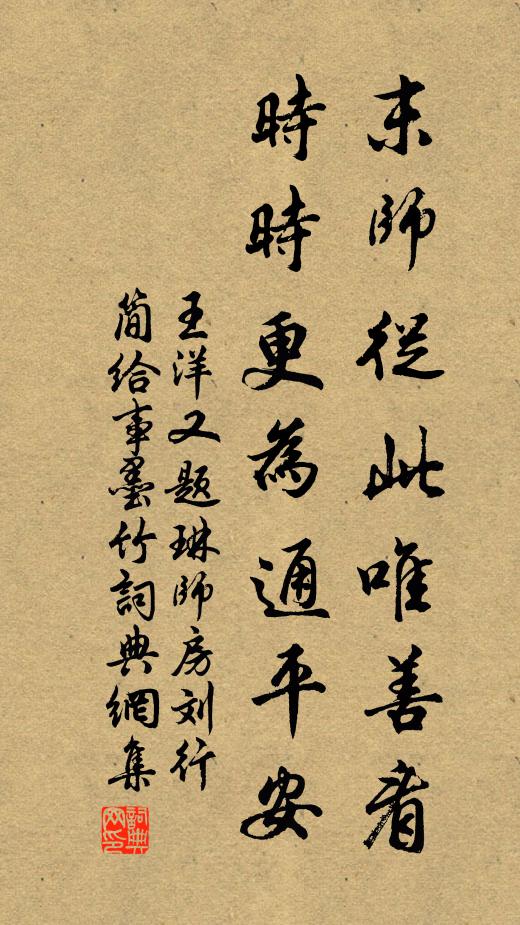 末師從此唯善看
時時更為通平安
王洋又題琳師房刘行
简給事墨竹詞典網集
詞典网印